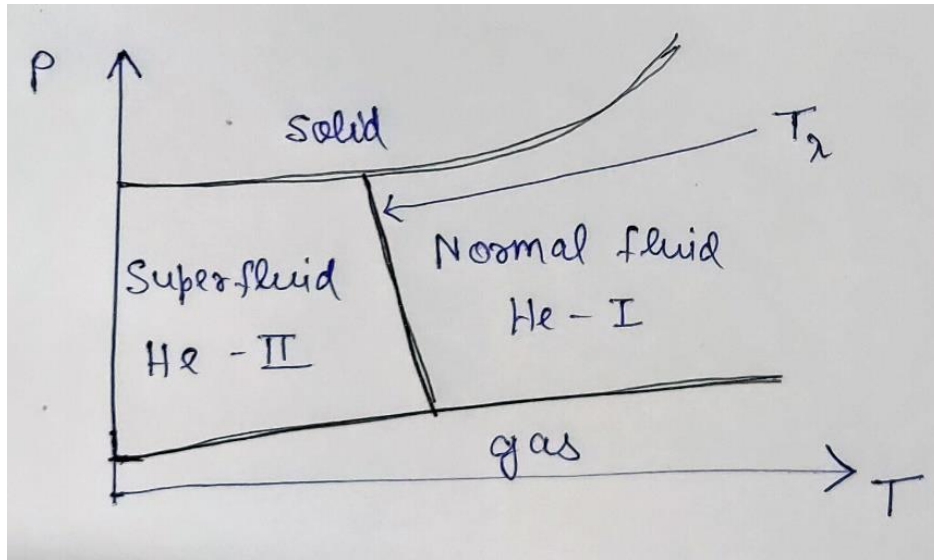 P
Solid
T_λ
Superfluid
He - II
Normal fluid
He - I
gas
T